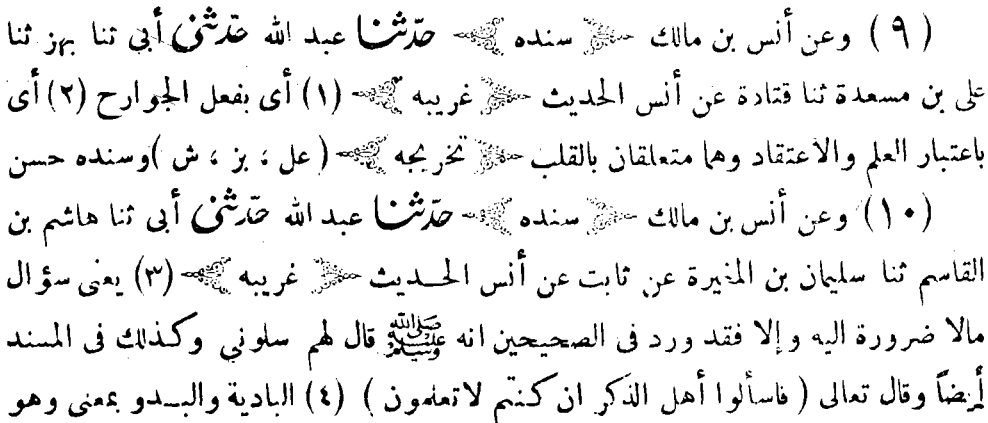 (٩) وعن أنس بن مالك ﴿ سنده ﴾ حدّثنا عبد الله حدّثنى أبى ثنا بهز ثنا
على بن مسعدة ثنا قتادة عن أنس الحديث ﴿ غريبه ﴾ (١) أى بفعل الجوارح (٢) أى
باعتبار العلم والاعتقاد وهما متعلقان بالقلب ﴿ تخريجه ﴾ ( عل ، بز ، ش ) وسنده حسن
(١٠) وعن أنس بن مالك ﴿ سنده ﴾ حدّثنا عبد الله حدّثنى أبى ثنا هاشم بن
القاسم ثنا سليمان بن المغيرة عن ثابت عن أنس الحديث ﴿ غريبه ﴾ (٣) يعنى سؤال
مالا ضرورة اليه وإلا فقد ورد فى الصحيحين انه ﷺ قال لهم سلونى وكذلك فى المسند
أيضاً وقال تعالى ( فاسألوا أهل الذكر ان كنتم لاتعلمون ) (٤) البادية والبدو بمعنى وهو